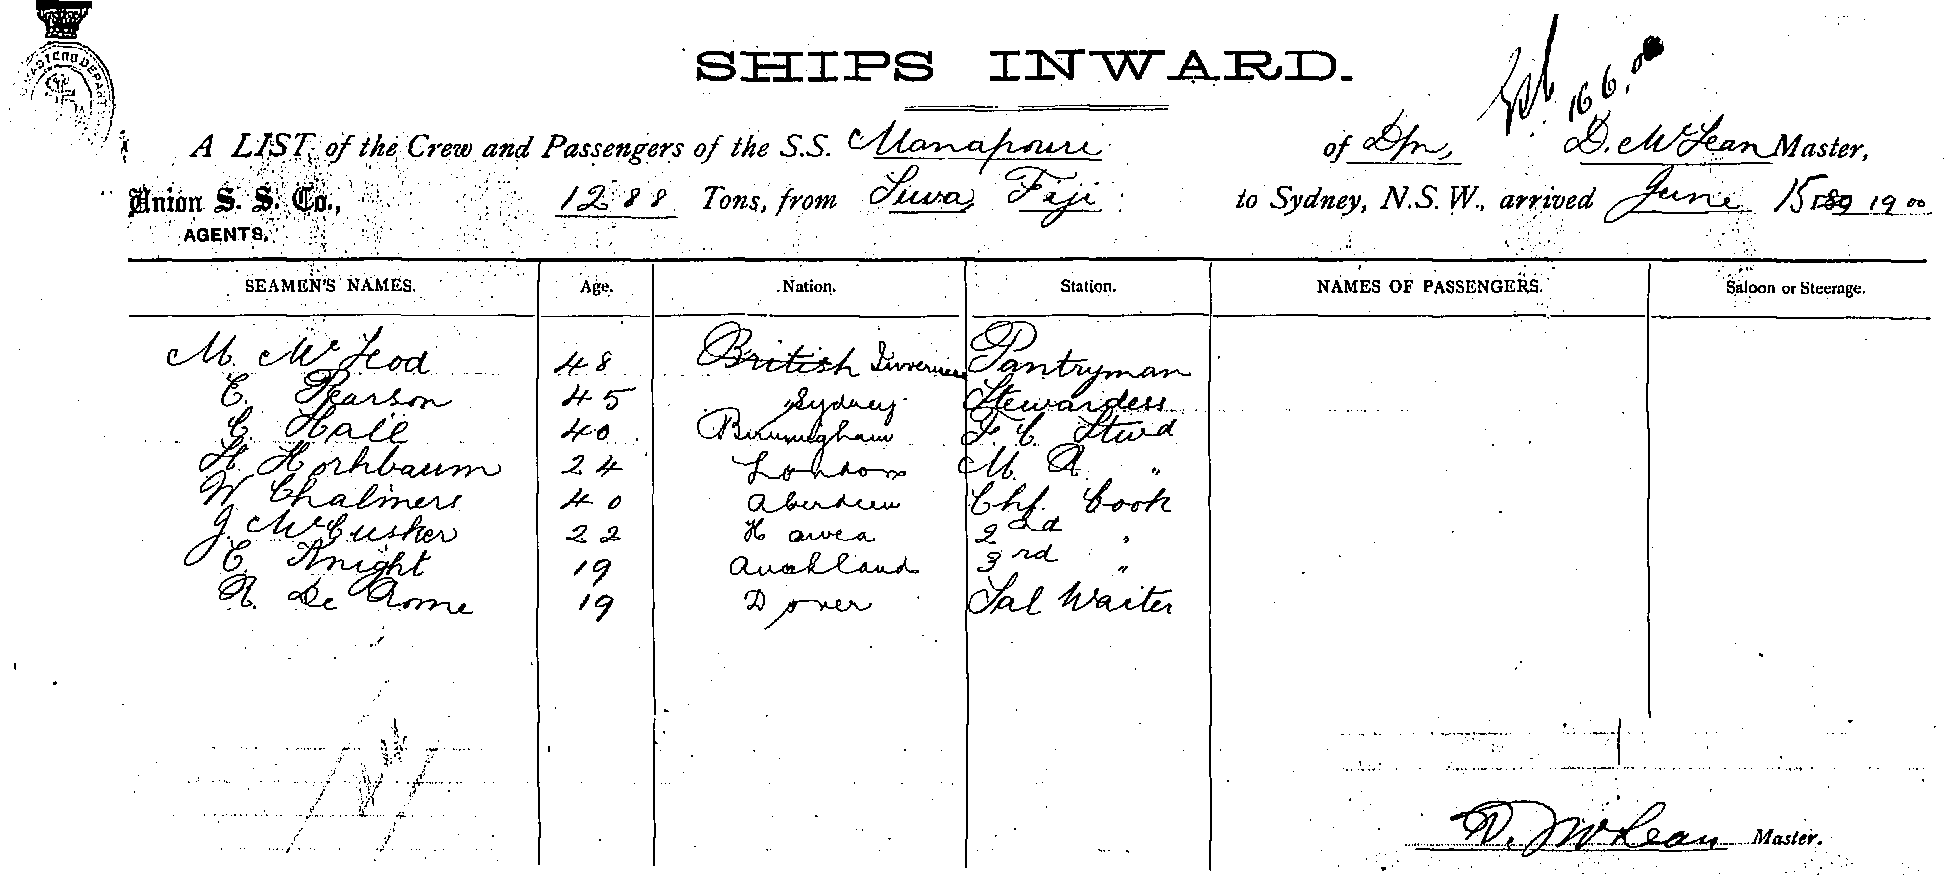 CUSTOMS DEPART
SHIPS INWARD.
16 6. 00
A LIST of the Crew and Passengers of the S.S. Manapouri of Dpn, D. McLean Master,
Union S. S. Co., AGENTS, 1288 Tons, from Suva, Fiji to Sydney, N.S.W., arrived June 15 189 1900
SEAMEN'S NAMES. Age. Nation. Station. NAMES OF PASSENGERS. Saloon or Steerage.
M. McLeod 48 British Inverness Pantryman
E. Pearson 45 Sydney Stewardess
G. Hall 40 Birmingham F. C. Stwd
H. Hornbaum 24 London M. R. "
W. Chalmers 40 Aberdeen Chf. Cook
J. McCusker 22 Hawea 2nd "
C. Knight 19 Auckland 3rd "
R. De Rome 19 Dover Sal Waiter
D. McLean Master.